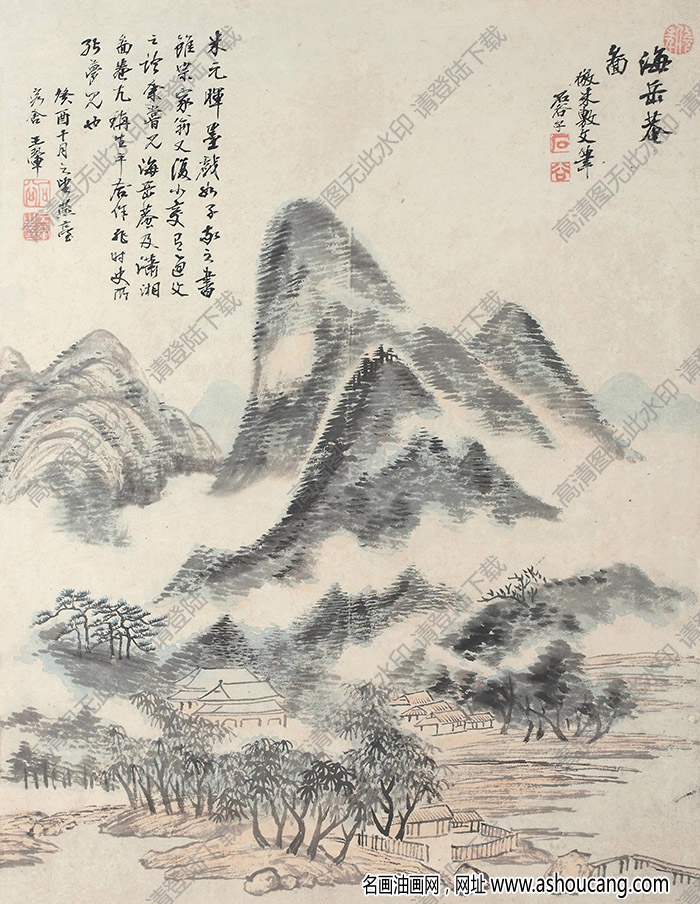 海岳菴
圖
倣米敷文筆
石谷子
石
谷
米元暉墨戲如子敬之書
雖宗家翁又復小變
余嘗見海岳菴及瀟湘
圖卷尤稱生平合作非時史所
夢見也
癸酉十月之望燕臺
客舍王翬
高清图无此水印 请登陆下载
名画油画网，网址 www.ashoucang.com